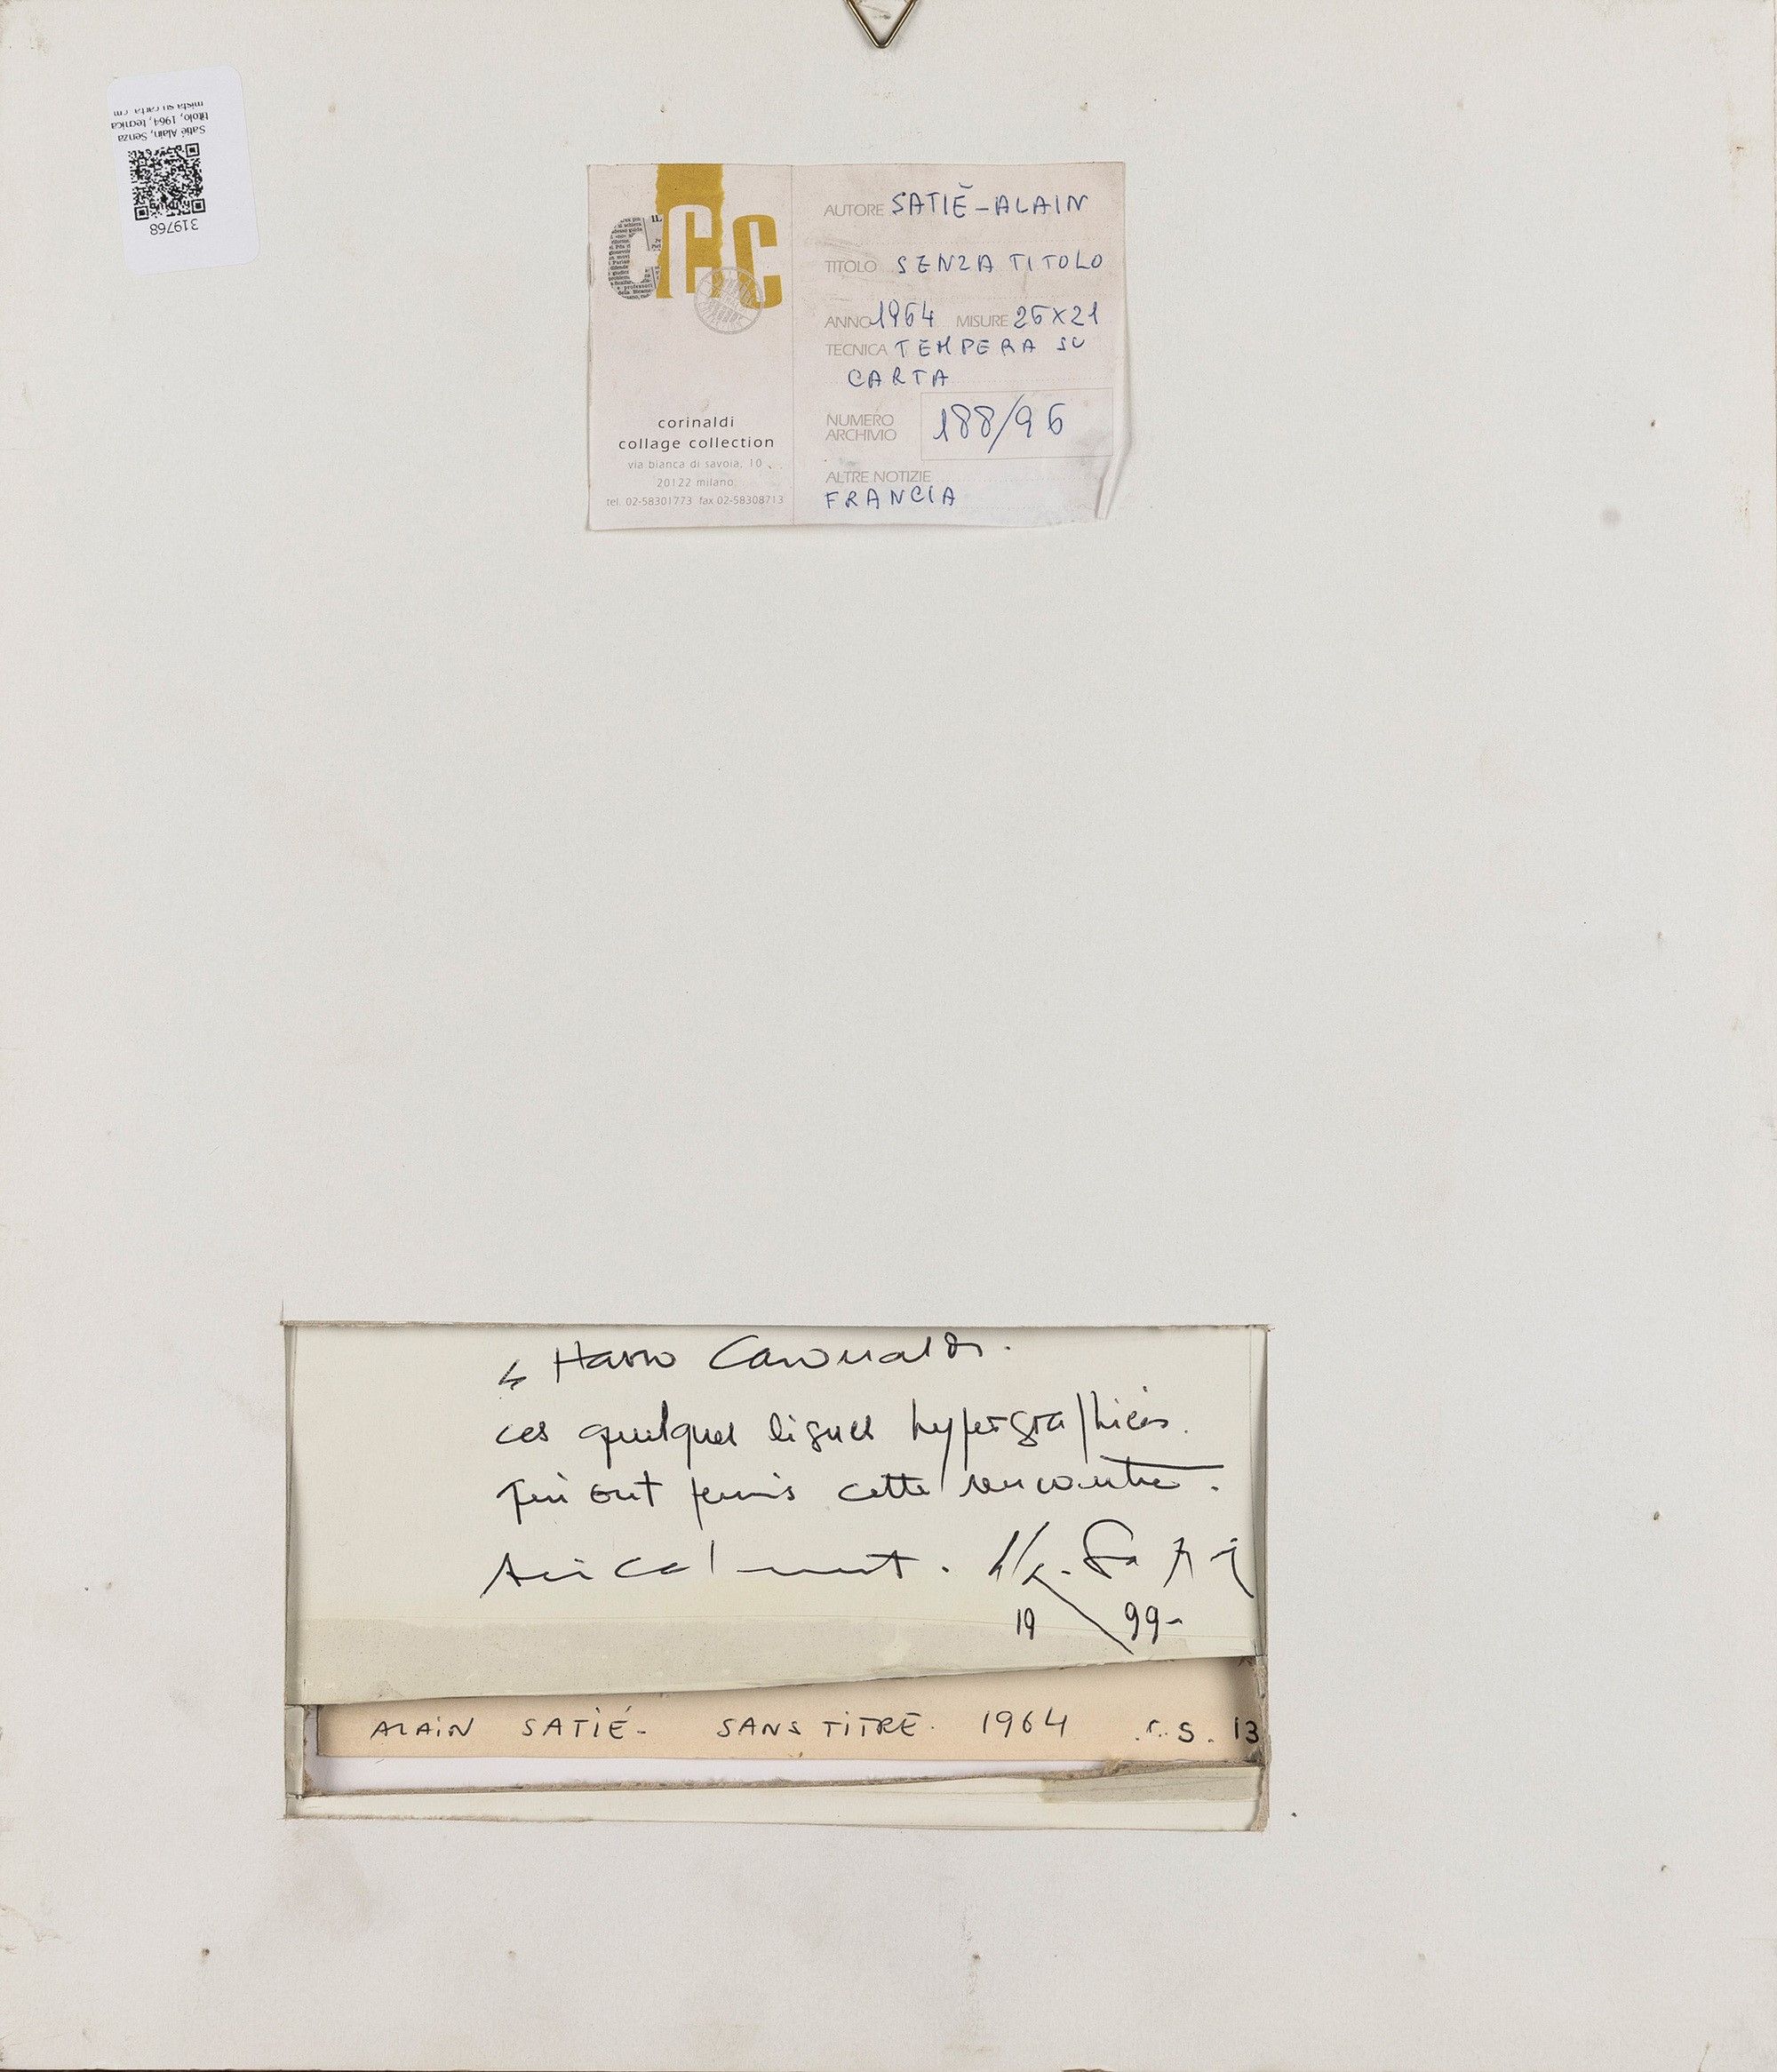 319768
Satié Alain, Senza
titolo, 1964, tecnica
mista su carta cm
CCC
corinaldi
collage collection
via bianca di savoia, 10
20122 milano
tel. 02-58301773 fax 02-58308713
AUTORE SATIÉ-ALAIN
TITOLO SENZA TITOLO
ANNO 1964 MISURE 26X21
TECNICA TEMPERA SU
CARTA
NUMERO
ARCHIVIO 188/96
ALTRE NOTIZIE
FRANCIA
ces quelques lignes hypergraphiées.
qui ont permis cette rencontre.
Amicalement.
19 99-
ALAIN SATIÉ- SANS TITRE. 1964 S. 13